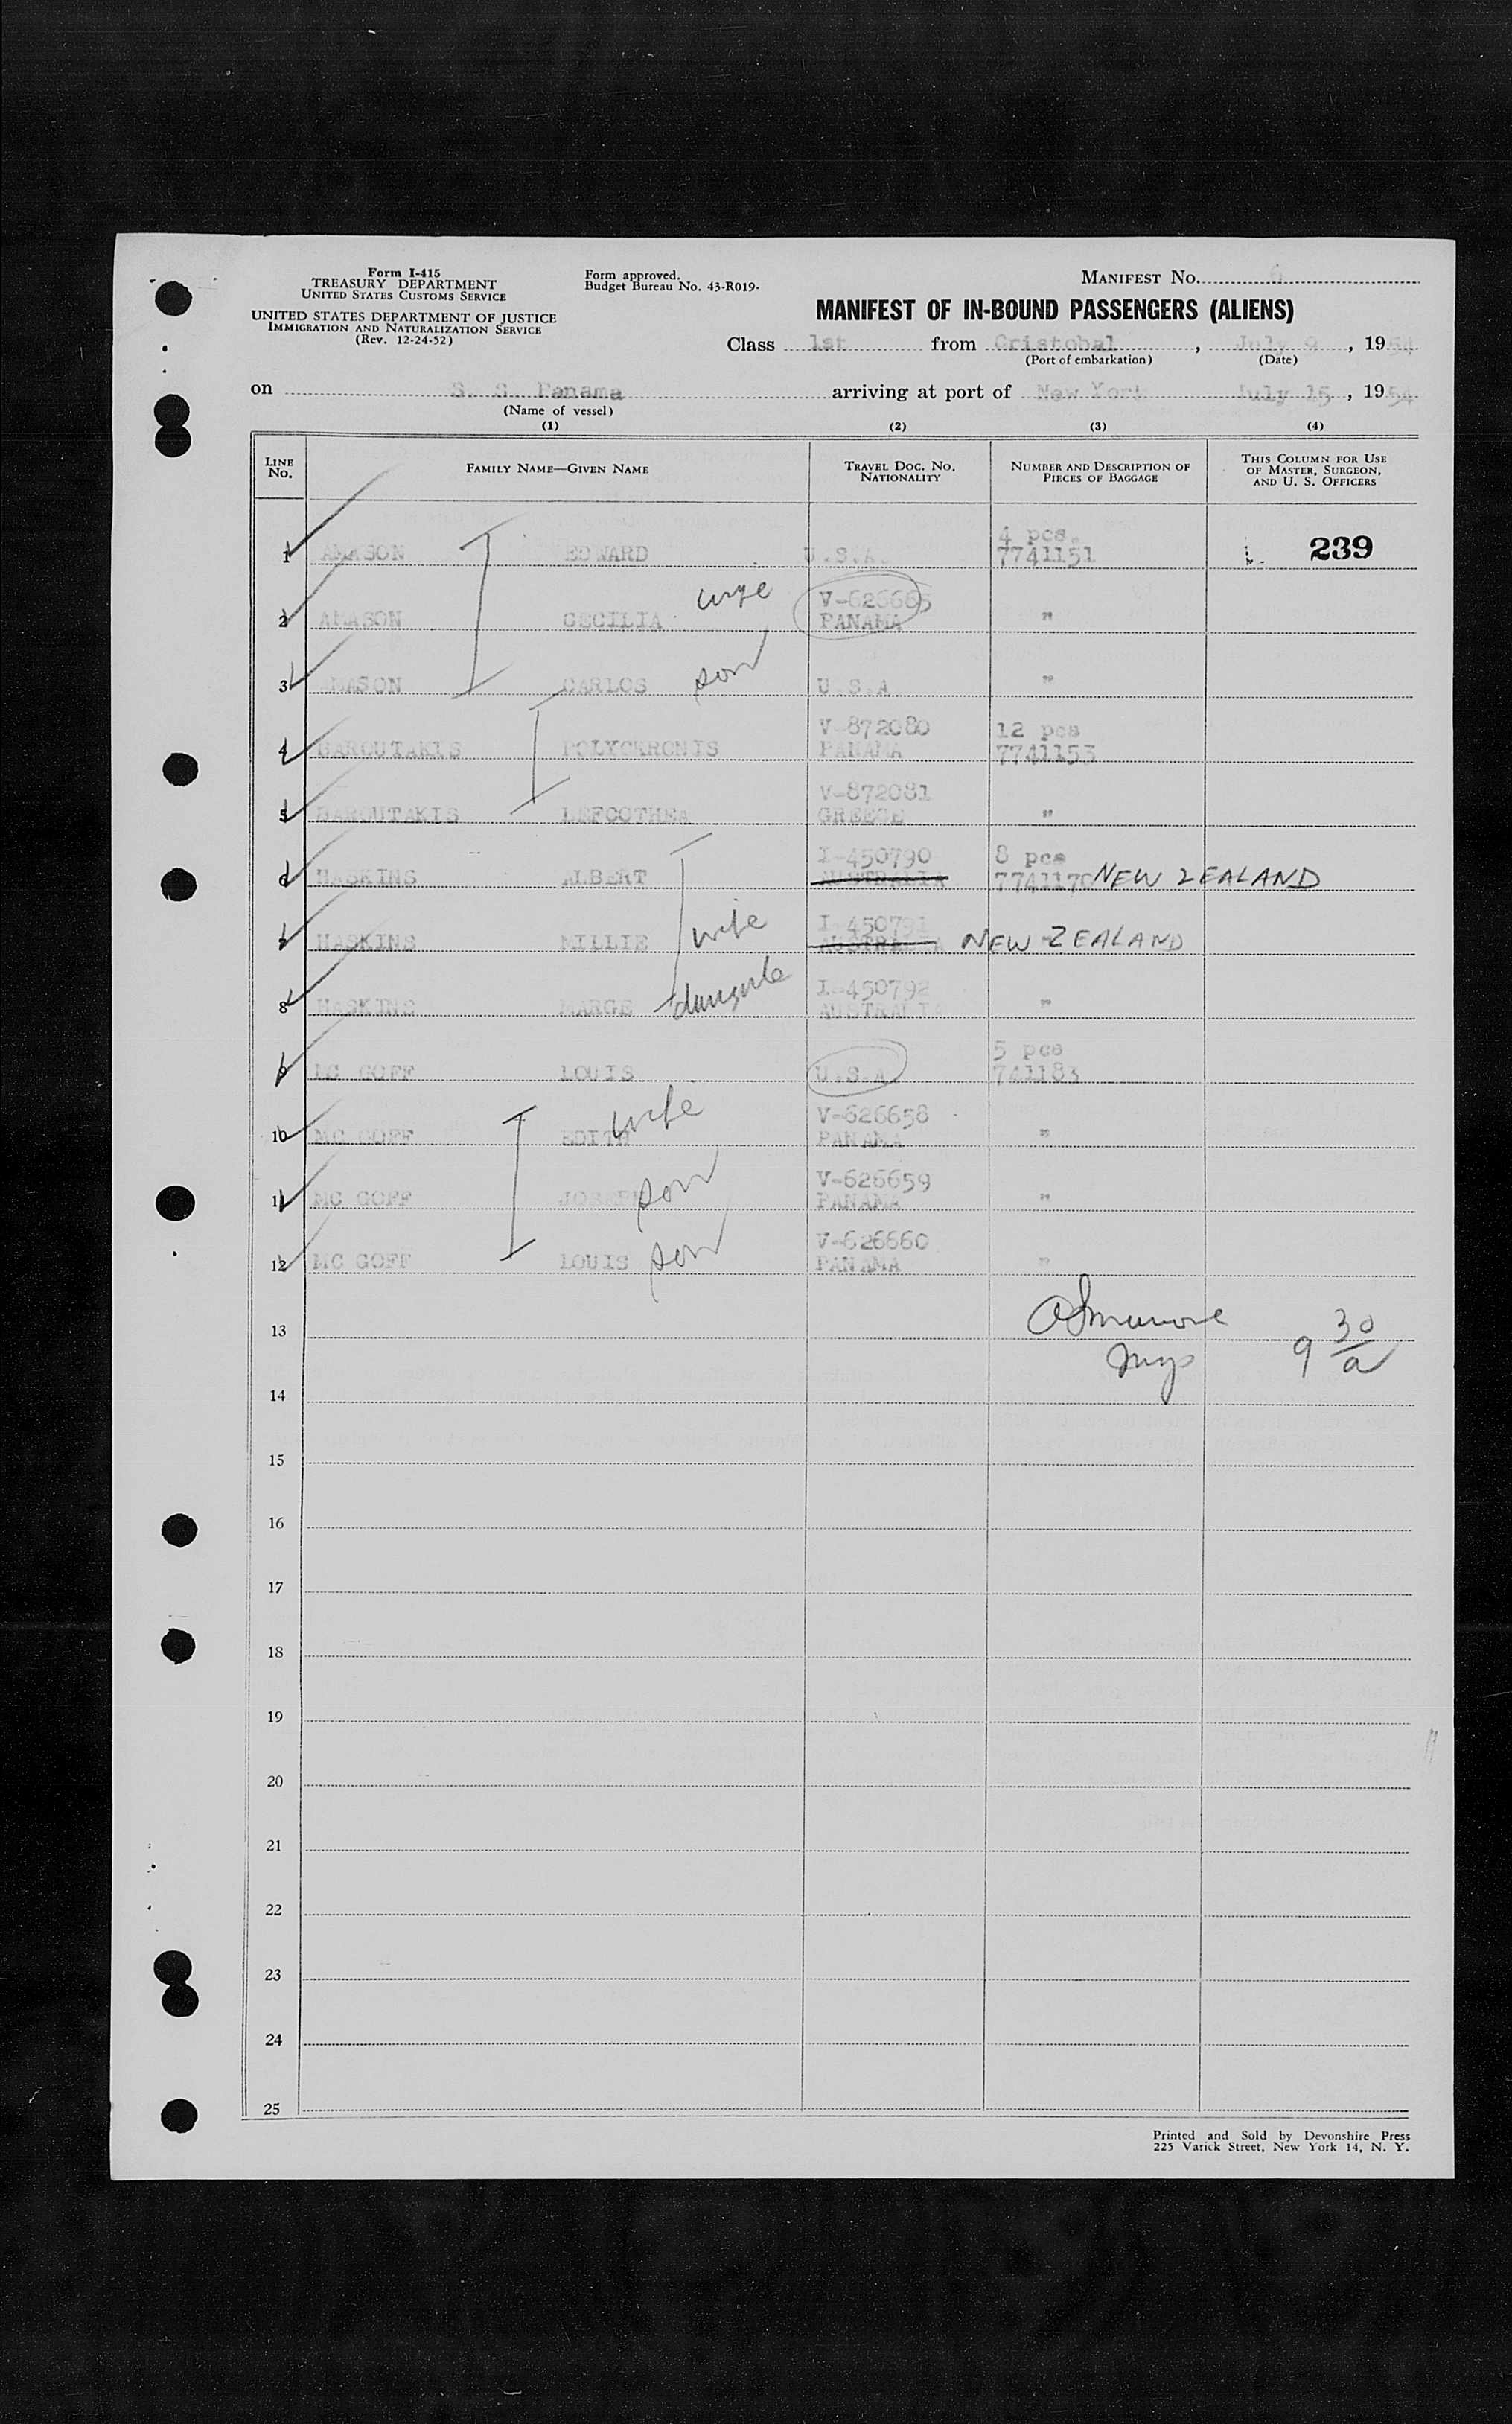 Form I-415
TREASURY DEPARTMENT
UNITED STATES CUSTOMS SERVICE
UNITED STATES DEPARTMENT OF JUSTICE
IMMIGRATION AND NATURALIZATION SERVICE
(Rev. 12-24-52)
Form approved.
Budget Bureau No. 43-R019-
MANIFEST No. 6
MANIFEST OF IN-BOUND PASSENGERS (ALIENS)
Class 1st from Cristobal, July 9, 1954
(Port of embarkation) (Date)
on S. S. Panama arriving at port of New York July 15, 1954
(Name of vessel)
(1) (2) (3) (4)
LINE No. FAMILY NAME—GIVEN NAME TRAVEL DOC. NO. NATIONALITY NUMBER AND DESCRIPTION OF PIECES OF BAGGAGE THIS COLUMN FOR USE OF MASTER, SURGEON, AND U. S. OFFICERS
4 pcs.
1 AMASON EDWARD U.S.A. 7741151 239
wife V-626665
2 AMASON CECILIA PANAMA "
3 AMASON CARLOS son U.S.A "
V-872080 12 pcs
4 BAROUTAKIS POLYCKRONIS PANAMA 7741153
V-872081
5 BAROUTAKIS LEFCOTHEA GREECE "
I-450790 8 pcs
6 HASKINS ALBERT AUSTRALIA 7741170 NEW ZEALAND
I-450791
7 HASKINS MILLIE wife AUSTRALIA NEW ZEALAND
I-450792
8 HASKINS MARGE AUSTRALIA "
5 pcs
9 MC GOFF LOUIS U.S.A 741183
wife V-626658
10 MC GOFF EDITH PANAMA "
V-626659
11 MC GOFF JOSEPH son PANAMA "
V-626660
12 MC GOFF LOUIS son PANAMA "
13
9 30/a
14
15
16
17
18
19
20
21
22
23
24
25
Printed and Sold by Devonshire Press
225 Varick Street, New York 14, N. Y.